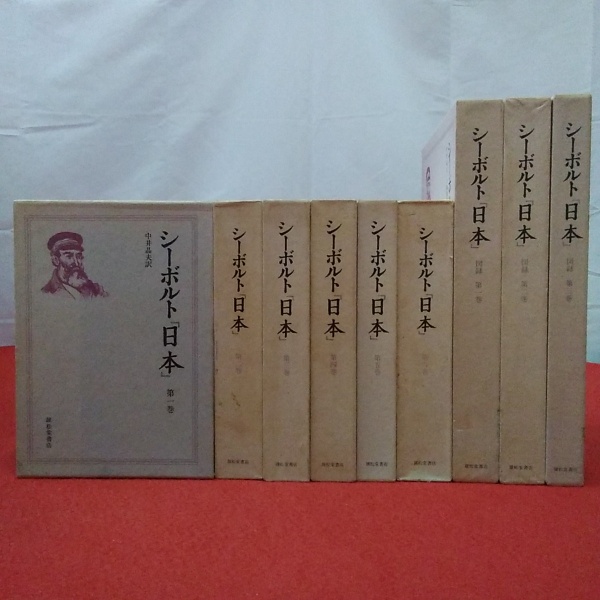 シーボルト『日本』
第一巻
中井晶夫訳
雄松堂書店
シーボルト『日本』
第二巻
雄松堂書店
シーボルト『日本』
第三巻
雄松堂書店
シーボルト『日本』
第四巻
雄松堂書店
シーボルト『日本』
第五巻
雄松堂書店
シーボルト『日本』
第六巻
雄松堂書店
シーボルト『日本』
図録 第一巻
雄松堂書店
シーボルト『日本』
図録 第二巻
雄松堂書店
シーボルト『日本』
図録 第三巻
雄松堂書店